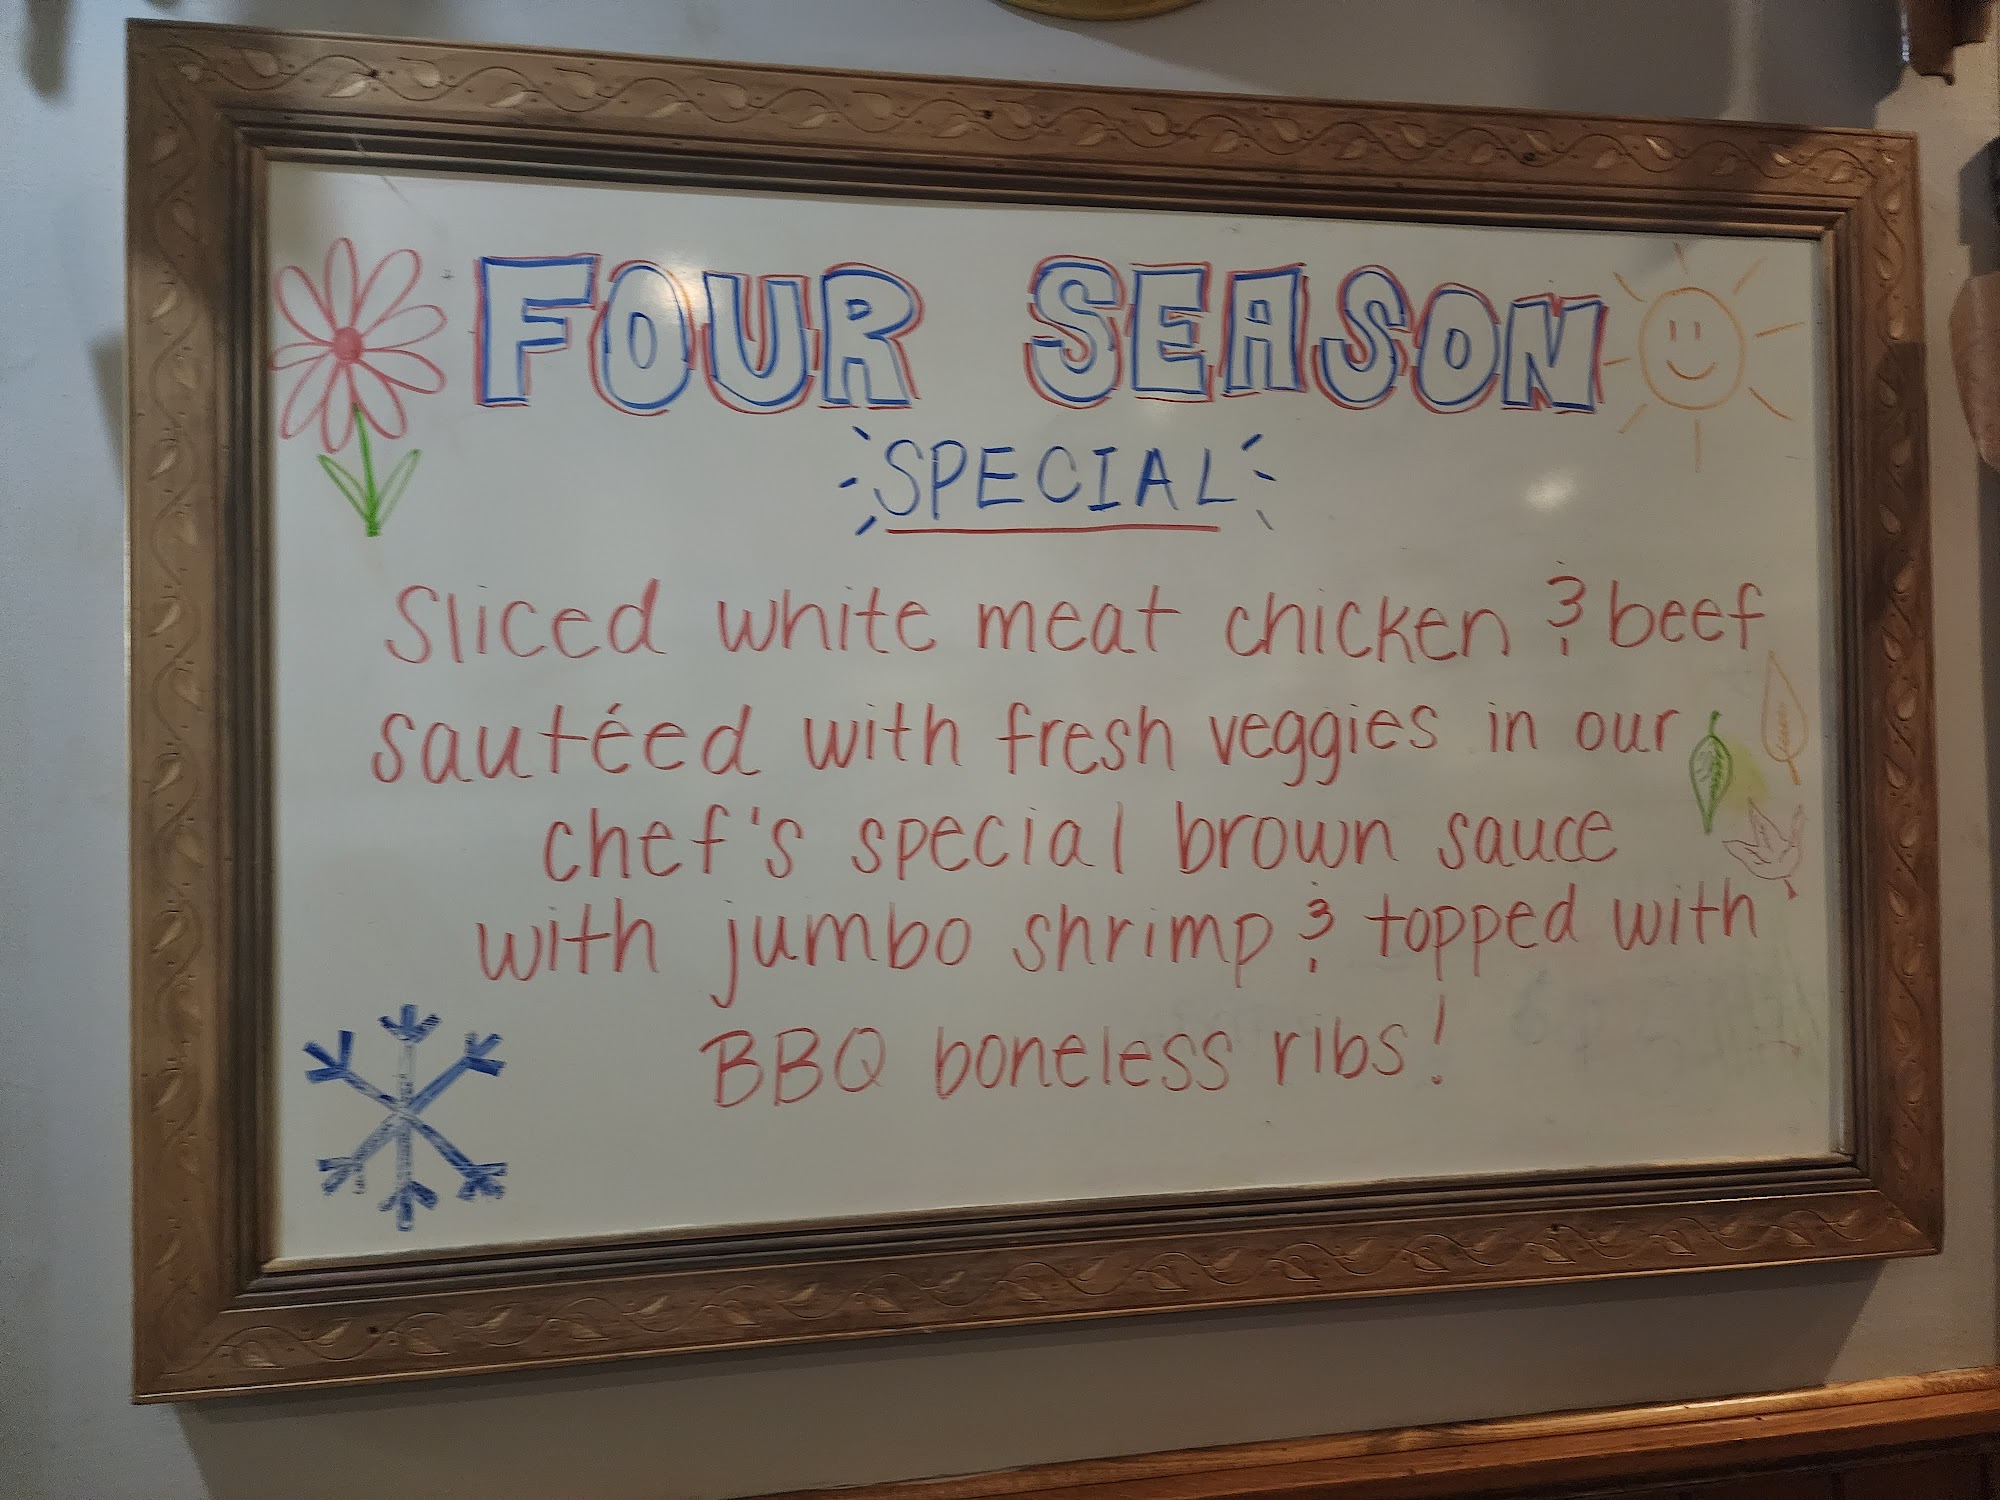 FOUR SEASON
SPECIAL
Sliced white meat chicken & beef
sautéed with fresh veggies in our
chef's special brown sauce
with jumbo shrimp & topped with
BBQ boneless ribs!